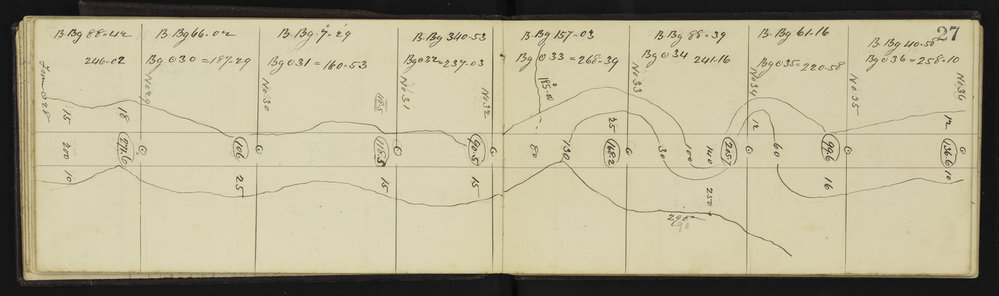 27
B. Bg 88-42
B. Bg 66-02
B. Bg 9-29
B. Bg 340-53
B. Bg 157-03
B. Bg 88-39
B. Bg 61-16
B. Bg 40-50
246-02
Bg @ 30 = 187-29
Bg @ 31 = 160-53
Bg @ 32 = 237-03
Bg @ 33 = 268-39
Bg @ 34 241-16
Bg @ 35 = 220-58
Bg @ 36 = 258-10
From @ 28
No 29
No 30
No 31
No 32
No 33
No 34
No 35
No 36
15
18
118.5
25
12
12
200
106
118.5
90.5
80
130
168.2
30
100
140
205.7
60
99.6
136.6
10
25
15
15
250
16
10
290
290